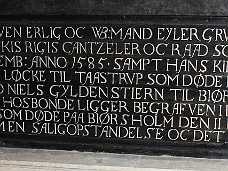 VEN ERLIG OC W: MAND EYLER GRV
KIS RIGIS CANTZELER OC RAAD SO
EMB: ANNO 1585 · SAMPT HANS KI
LØCKE TIL TAASTRVP SOM DØDE
D NIELS GYLDENSTIERN TIL BIØR
HOSBONDE LIGGER BEGRAFVEN I H
SOM DØDE PAA BIØRSHOLM DEN II
MEN SALIG OPSTANDELSE OC DET